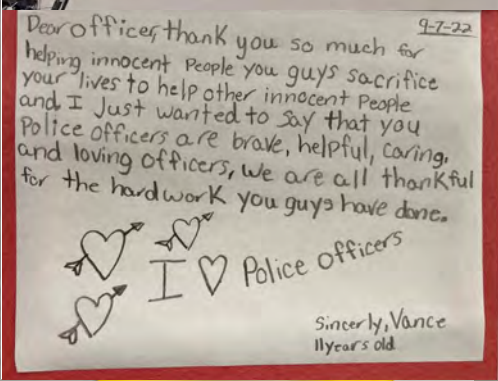 9-7-22
Dear officer, thank you so much for
helping innocent People you guys sacrifice
your lives to help other innocent People
and I Just wanted to say that you
Police officers are brave, helpful, caring,
and loving officers, we are all thankful
for the hard work you guys have done.
I ♡ Police officers
Sincerly, Vance
11years old